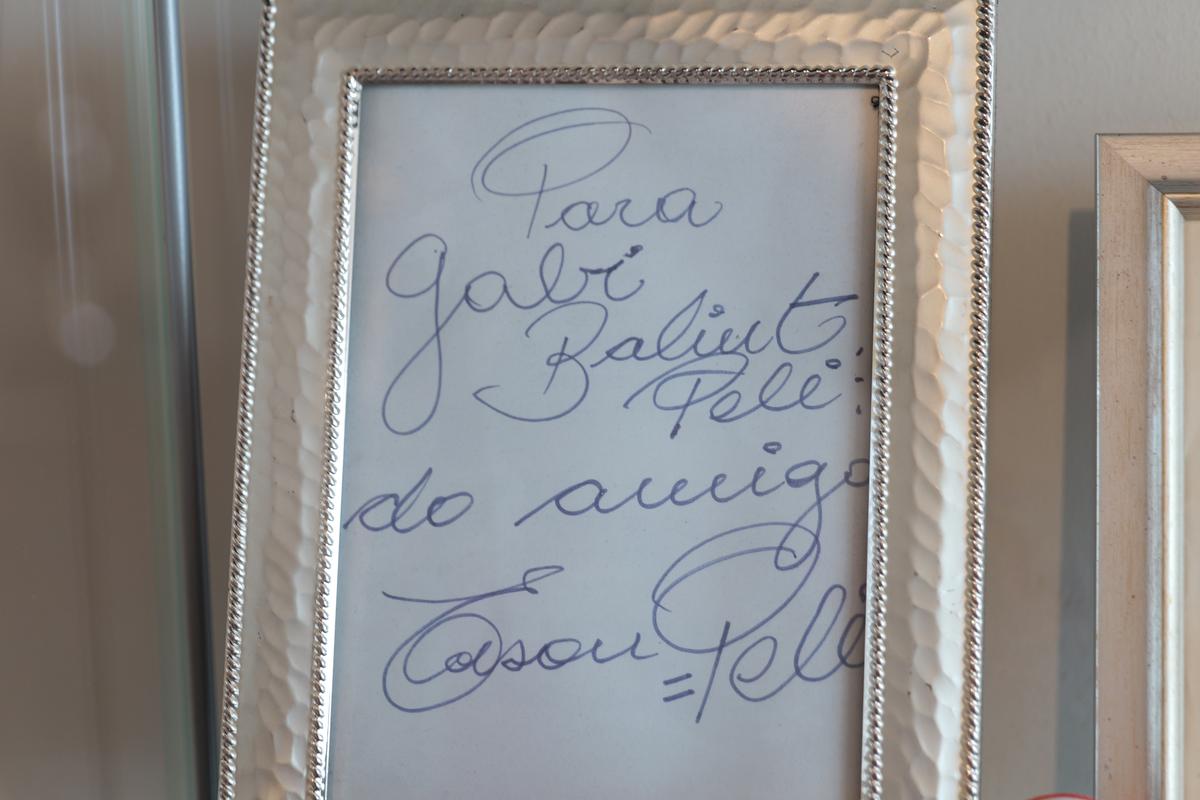 Para
Gabi
Balint
Pelé:
do amigo
Edson = Pelé